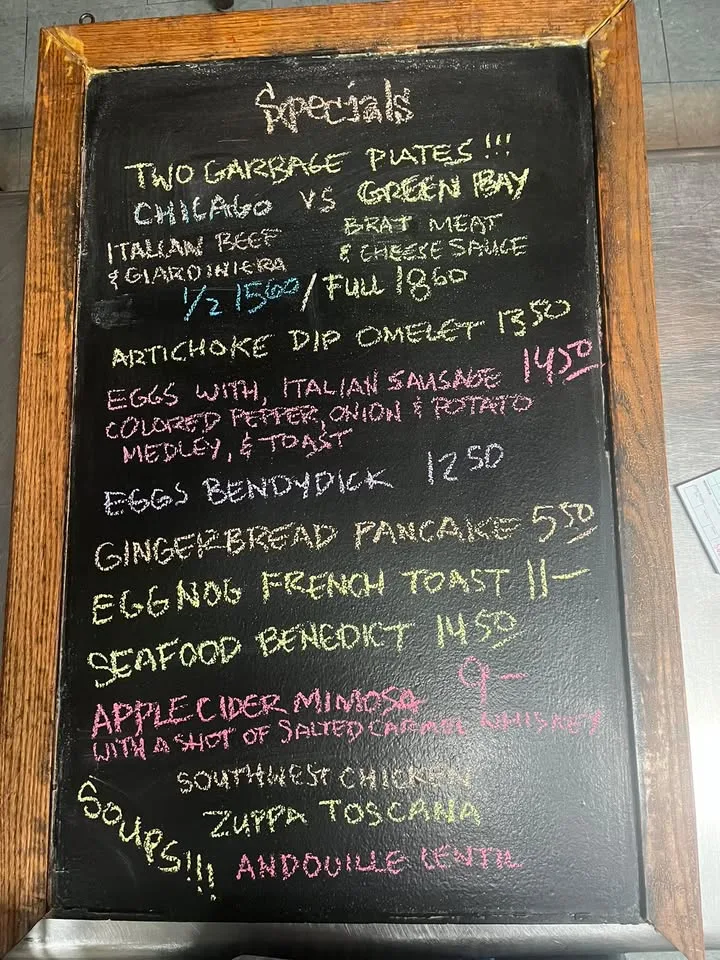 Specials
TWO GARBAGE PLATES!!!
CHICAGO VS GREEN BAY
ITALIAN BEEF
& GIARDINIERA
BRAT MEAT
& CHEESE SAUCE
1/2 1560 / FULL 1860
ARTICHOKE DIP OMELET 1350
EGGS WITH, ITALIAN SAUSAGE 1450
COLORED PEPPER, ONION & POTATO
MEDLEY, & TOAST
EGGS BENDYDICK 1250
GINGERBREAD PANCAKE 550
EGGNOG FRENCH TOAST 11—
SEAFOOD BENEDICT 1450
APPLE CIDER MIMOSA 9—
WITH A SHOT OF SALTED CARAMEL WHISKEY
SOUPS!!!
SOUTHWEST CHICKEN
ZUPPA TOSCANA
ANDOUILLE LENTIL